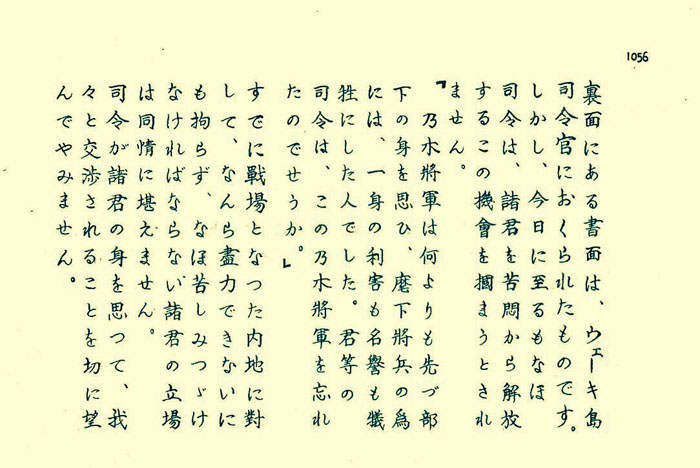 1056
裏面にある書面は、ウェーキ島
司令官におくられたものです。
しかし、今日に至るもなほ
司令は、諸君を苦悶から解放
するこの機會を摑まうとされ
ません。
「乃木將軍は何よりも先づ部
下の身を思ひ、麾下將兵の爲
には、一身の利害も名譽も犠
牲にした人でした。君等の
司令は、この乃木將軍を忘れ
たのでせうか。」
すでに戰場となつた内地に對
して、なんら盡力できないに
も拘らず、なほ苦しみつゞけ
なければならない諸君の立場
は同情に堪えません。
司令が諸君の身を思つて、我
々と交渉されることを切に望
んでやみません。